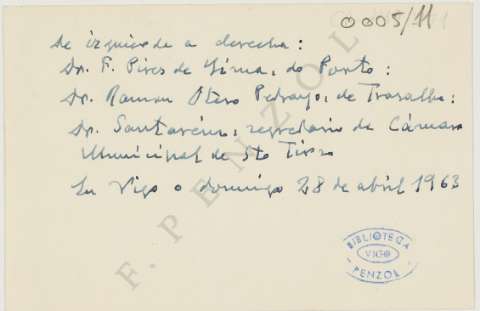 0005/11
De izquierda a derecha:
Dr. F. Pires de Lima, do Porto:
Dr. Ramon Otero Pedrayo, de Trasalba:
Dr. Santarém, segredario da Cámara
Municipal de Sto Tirso
En Vigo o domingo 28 de abril 1963
F. PENZOL
BIBLIOTECA
VIGO
PENZOL